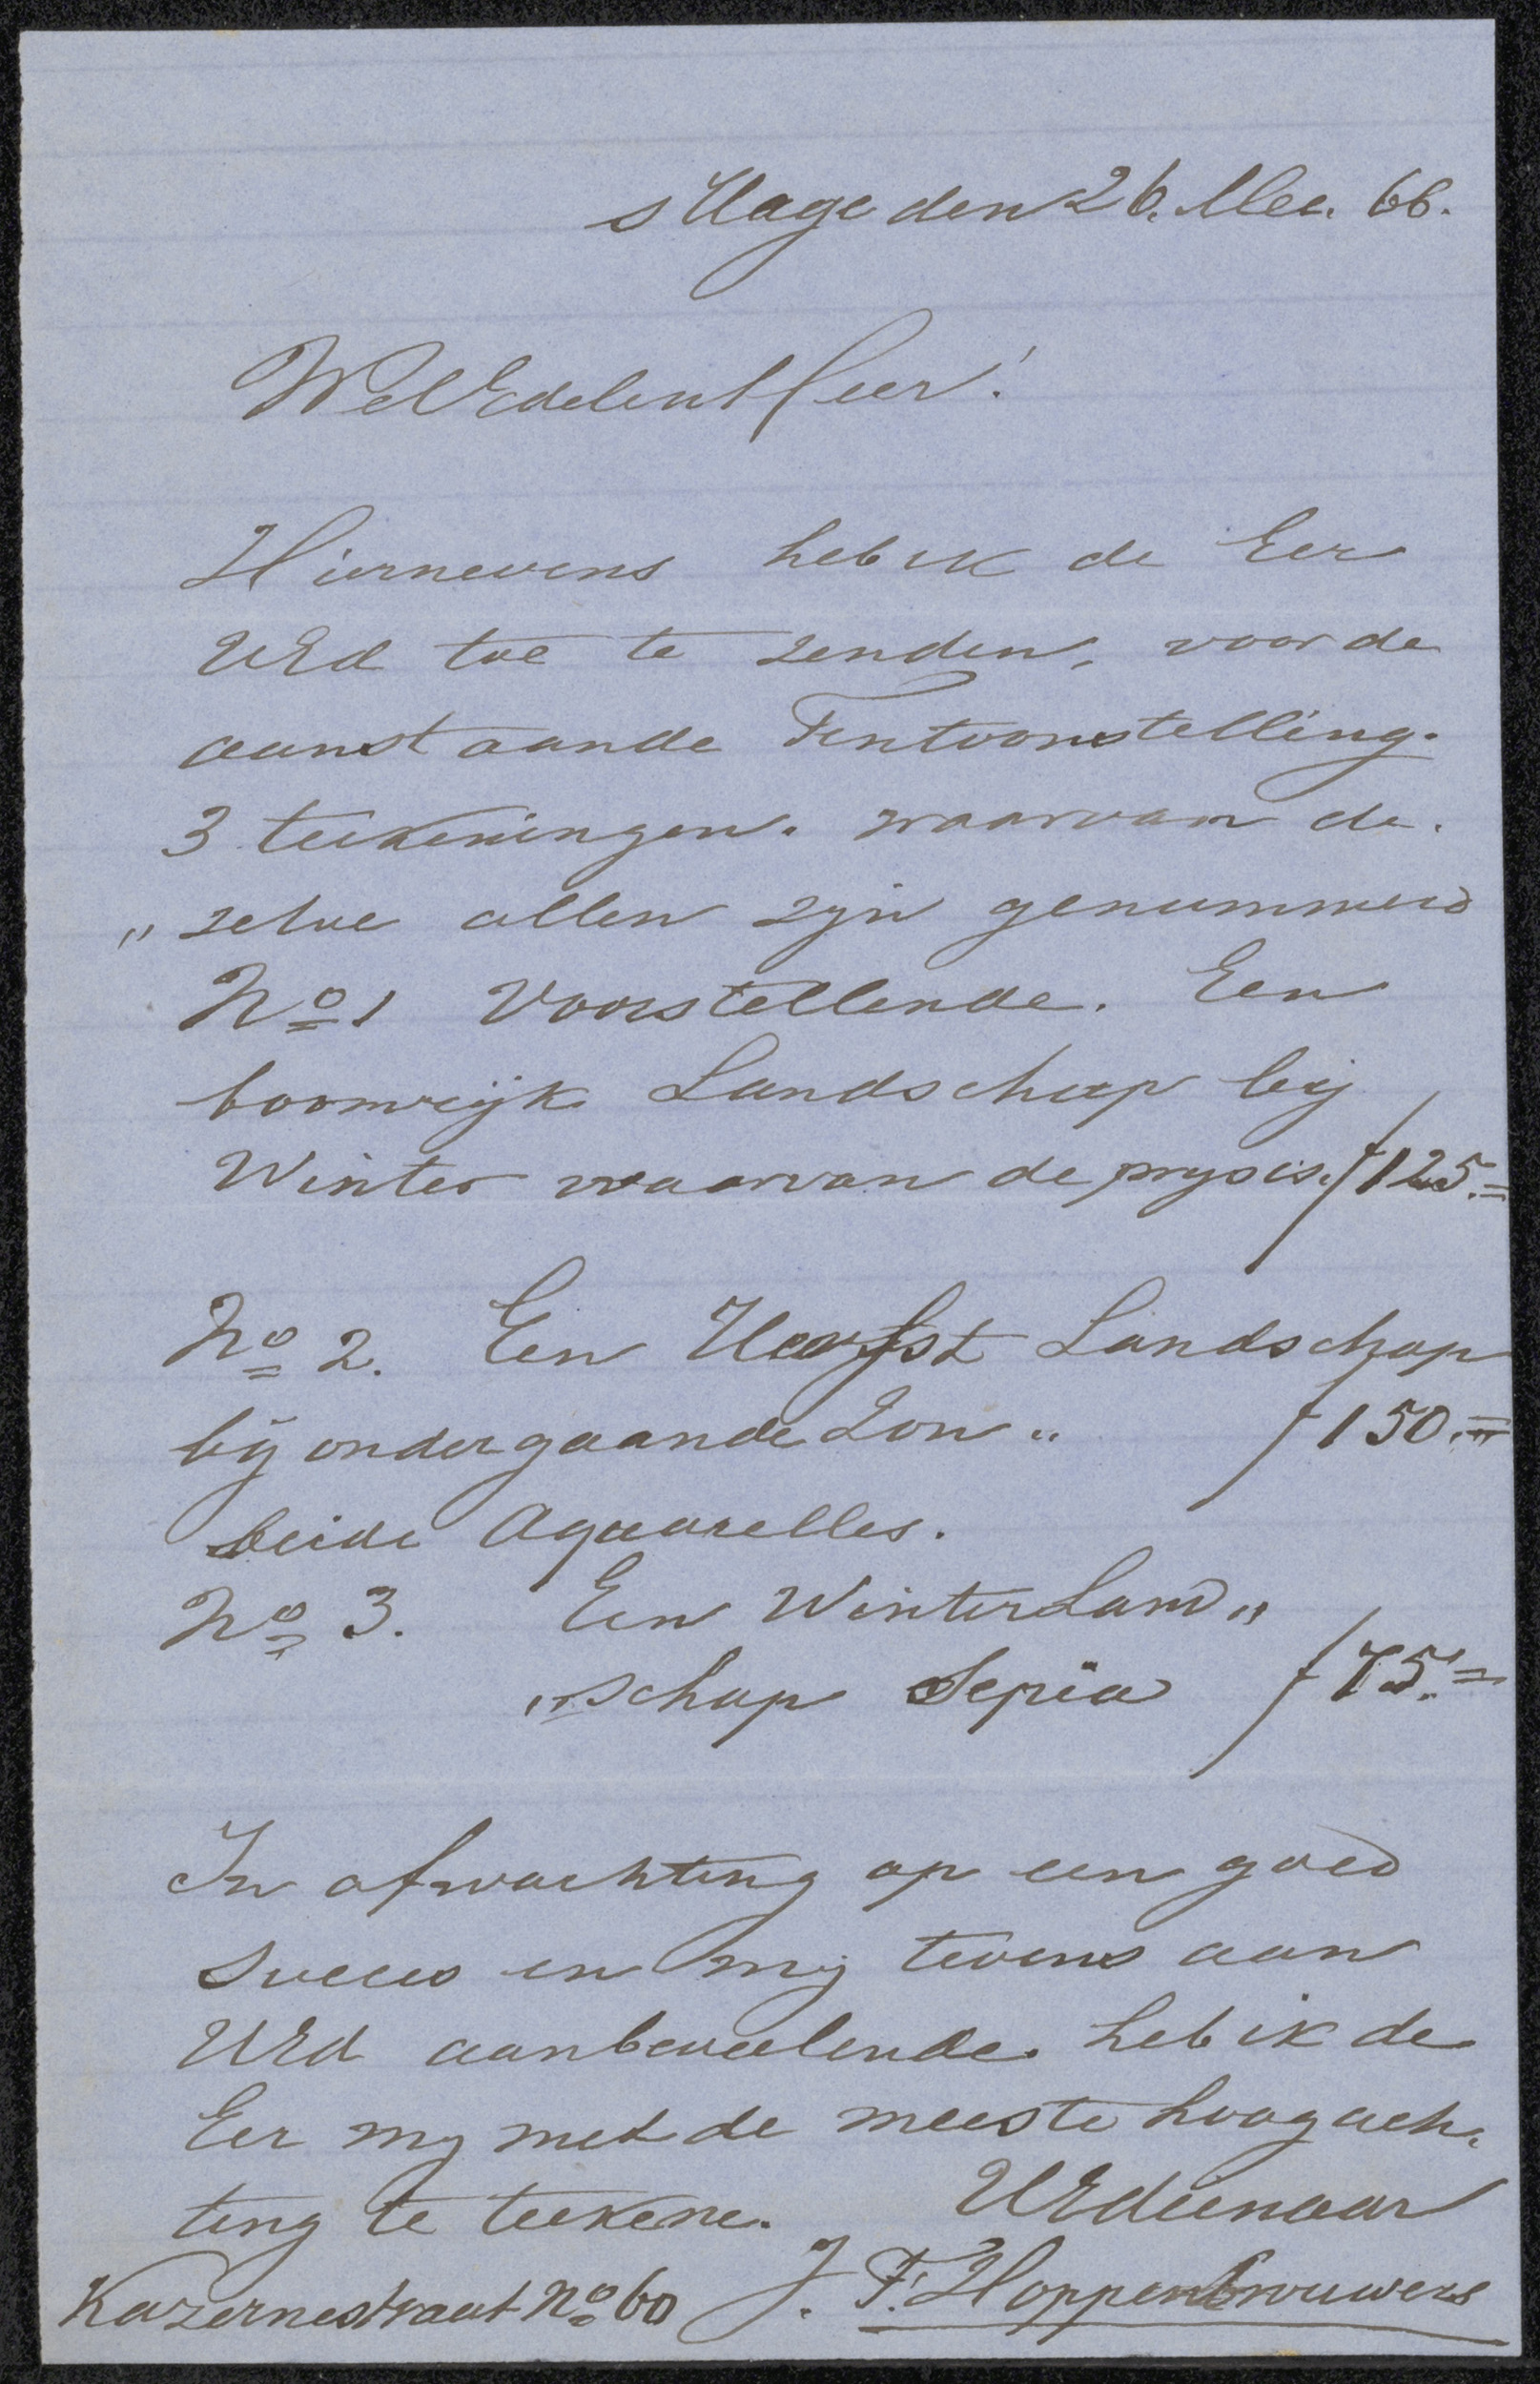 s Hage den 26. Mei. 66.
WelEdelen Heer!
Hiernevens heb ik de Eer
UEd toe te zenden, voor de
aanstaande Tentoonstelling.
3 teekeningen. waarvan de.
„ zelve allen zyn genummerd
No 1 Voorstellende. Een
boomrijk Landschap bij
Winter waarvan de prys is. f 125.=
No 2. Een Herfst Landschap
bij ondergaande Zon „ f 150.=
beide Aquarelles.
No 3. Een Winter Land „
„ schap Sepia f 75.=
In afwachting op een goed
Succes en mij tevens aan
UEd aanbeveelende. heb ik de
Eer my met de meeste hoogach.
ting te teekene. UEdienaar
Kazernestraat No 60 J. F. Hoppenbrouwers